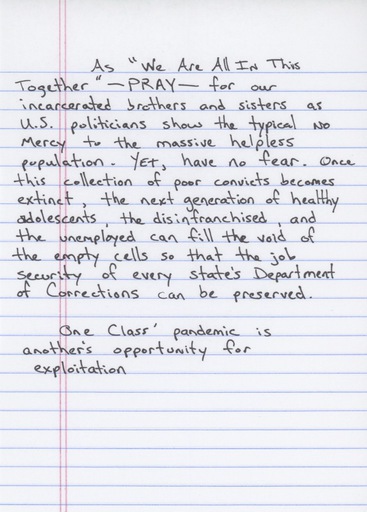 As "We Are All In This
Together" — PRAY — for our
incarcerated brothers and sisters as
U.S. politicians show the typical No
Mercy to the massive helpless
population. Yet, have no fear. Once
this collection of poor convicts becomes
extinct, the next generation of healthy
adolescents, the disinfranchised, and
the unemployed can fill the void of
the empty cells so that the job
security of every state's Department
of Corrections can be preserved.
One Class' pandemic is
another's opportunity for
exploitation